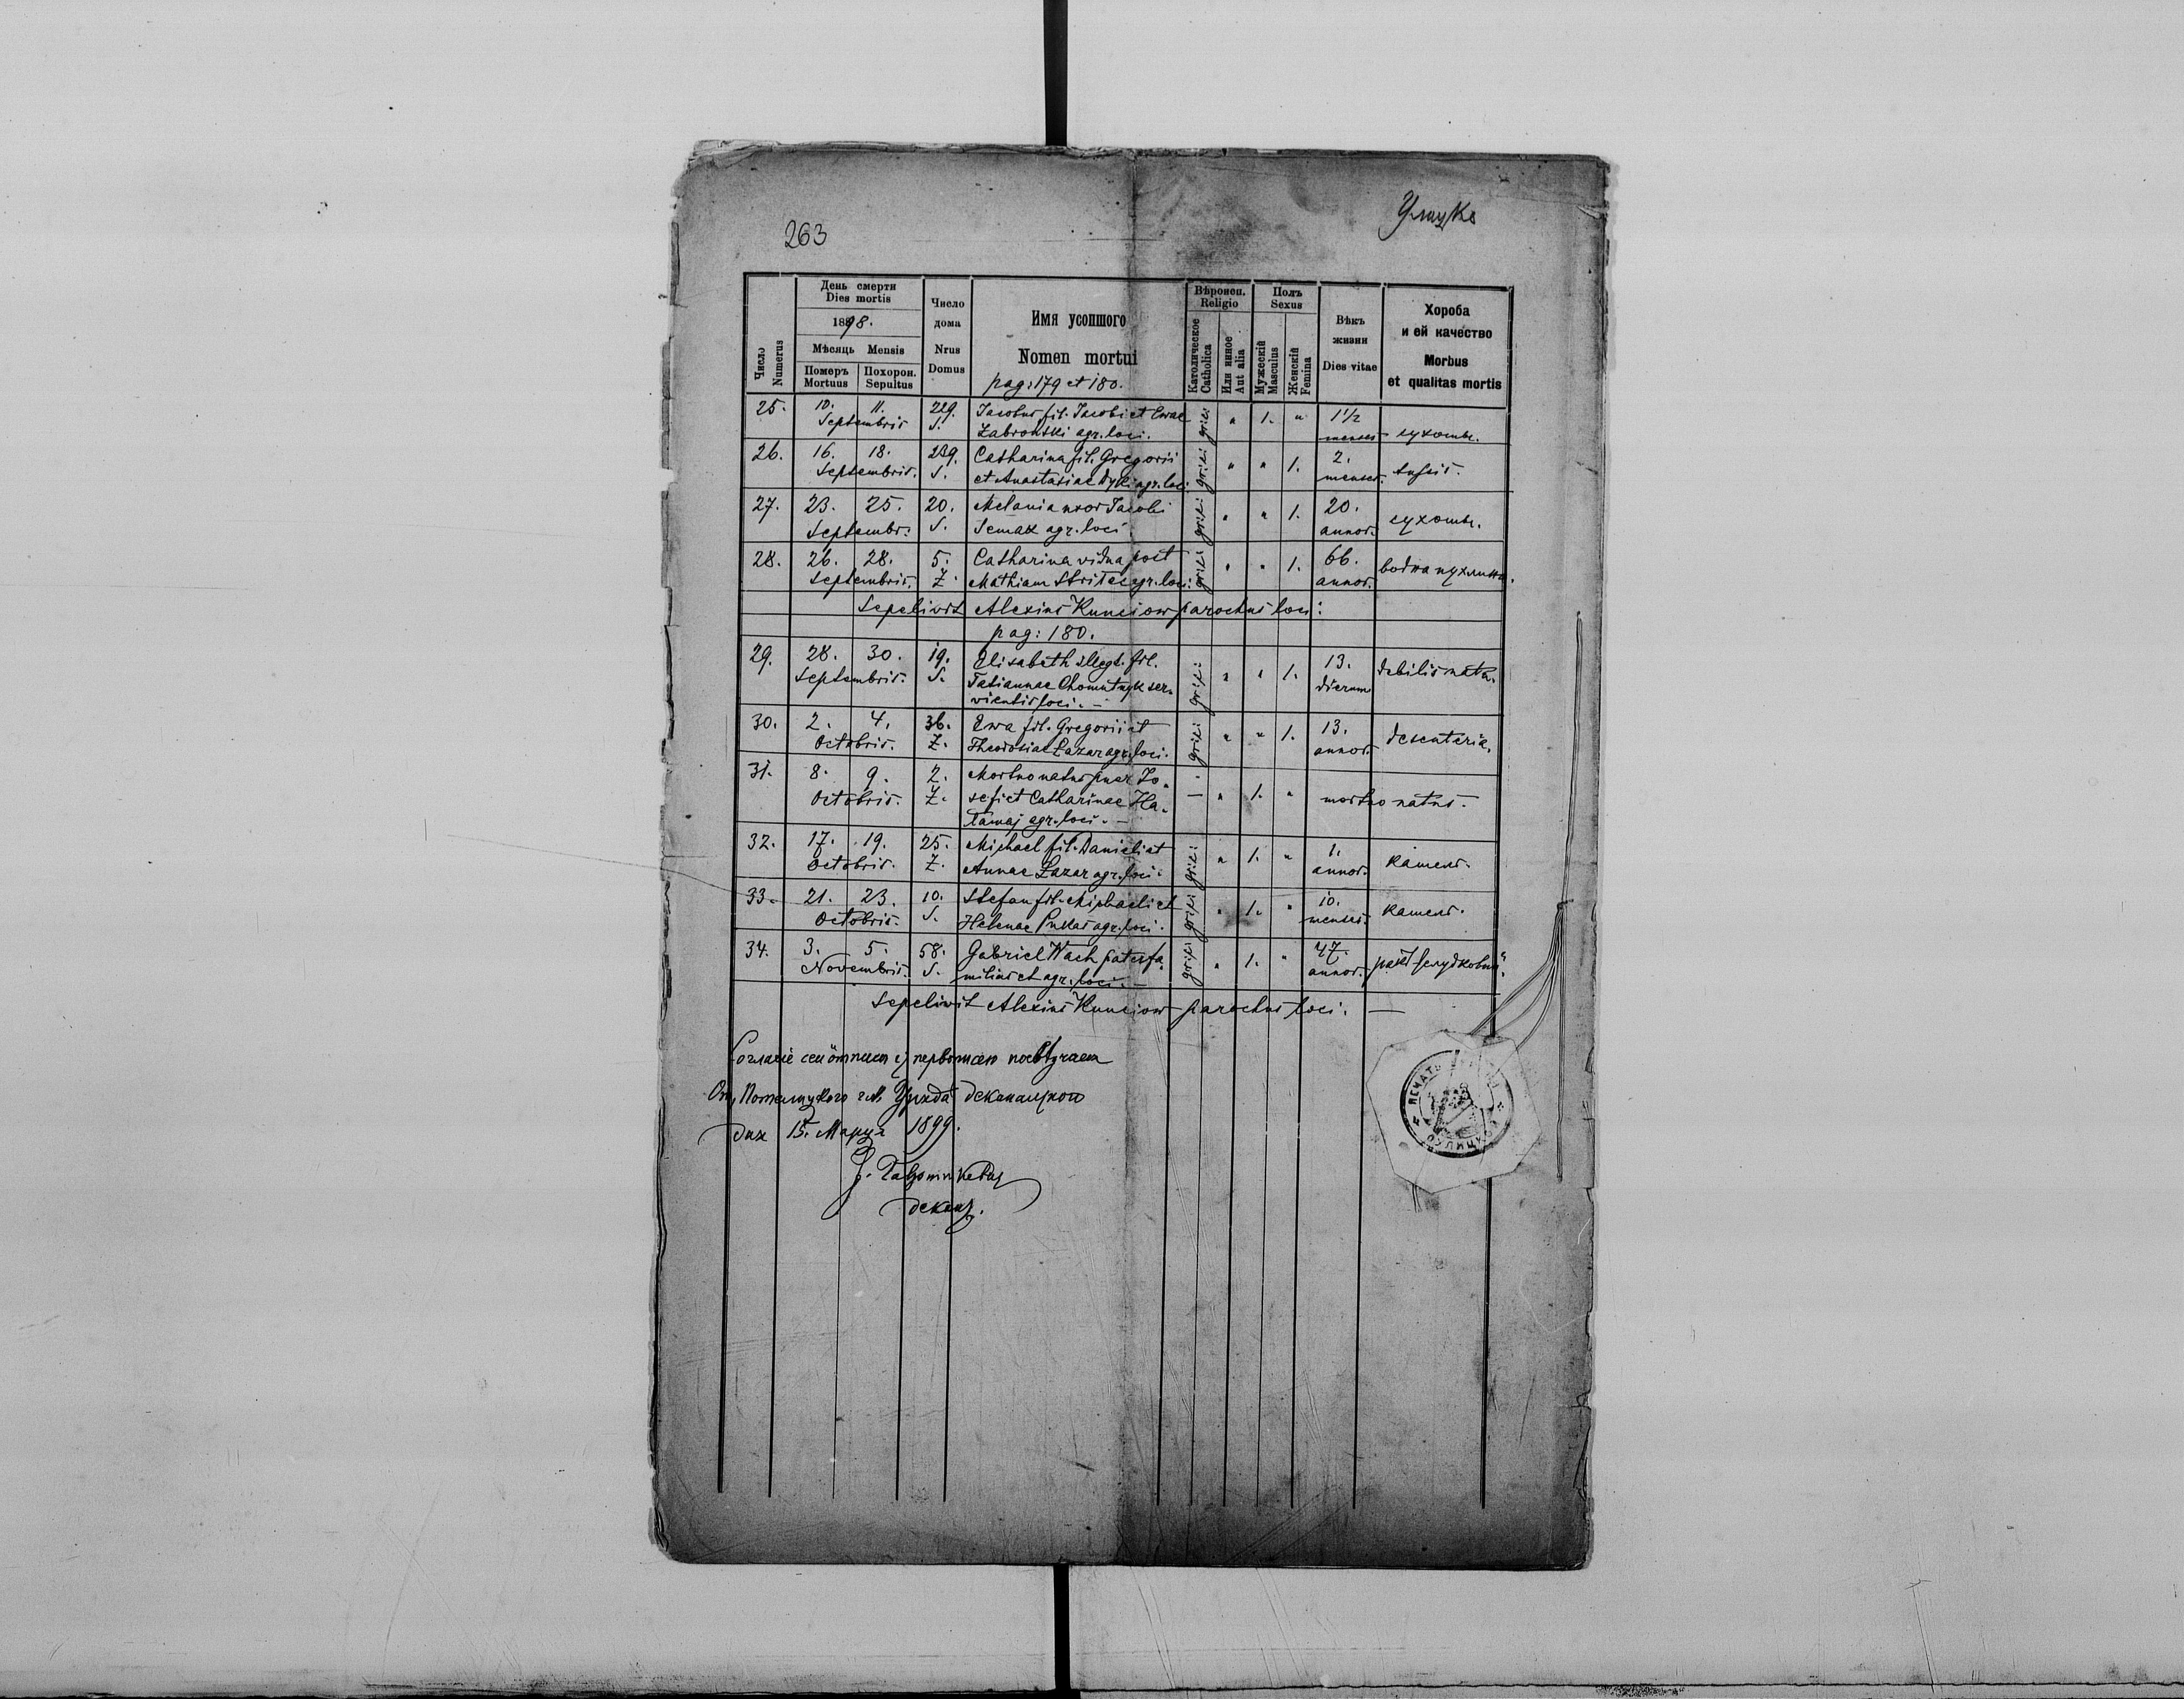 263
Улуцке
Число
Numerus
День смерти
Dies mortis
1898.
Мѣсяць Mensis
Померъ Похорон.
Mortuus Sepultus
Число
дома
Nrus
Domus
Имя усопшого
Nomen mortui
pag: 179 et 180.
Вѣроисп.
Religio
Католическое
Catholica
Или инное
Aut alia
Полъ
Sexus
Мужескій
Masculus
Женскій
Femina
Вѣкъ
жизни
Dies vitae
Хороба
и ей качество
Morbus
et qualitas mortis
25. 10. 11. 229. Jacobus fil. Jacobi et Ewae grici " 1. " 1 1/2
Septembris S. Zabronski agr. loci. menses сухоты.
26. 16. 18. 239. Catharina fil. Gregorii grici " " 1. 2.
Septembris. S. et Anastasiae Dyki agr. loci menses. tussis.
27. 23. 25. 20. Melania uxor Jacobi grici " " 1. 20.
Septembr. S. Semak agr. loci. annor. сухоты.
28. 26. 28. 5. Catharina vidua post grici " " 1. 66. водна пухлина.
Septembris. Z. Mathiam agr. loci. annor.
Sepelivit Alexius Kunciow parochus loci:
pag: 180.
29. 28. 30. 19. Elisabeth illegt. fil. grici " " 1. 13. debilis nata.
Septembris. S. Tatiannae Chomutnyk ser- dierum
vientis loci. —
30. 2. 4. 36. Ewa fil. Gregorii et grici " " 1. 13.
Octobris. Z. Theodosiae Lazar agr. loci. annor. desenteria.
31. 8. 9. 2. Mortuo natus puer Jo-
Octobris. Z. sefi et Catharinae Ha- — " 1. " mortuo natus.
lamaj agr. loci. —
32. 17. 19. 25. Michael fil. Danieli et grici " 1. " 1.
Octobris. Z. Annae Lazar agr. loci. annor. камень.
33. 21. 23. 10. Stefan fil. Michaeli et grici " 1. " 10.
Octobris. S. Helenae Pukas agr. loci. menses. камень.
34. 3. 5. 58. Gabriel Wach paterfa- grici " 1. " 47.
Novembris. S. milias et agr. loci. — annor.
Sepelivit Alexius Kunciow parochus loci. —
Согласіе сеи отписи съ первописею
Отъ Потелицкого Уряда деканацкого
дня 15. Марця 1899.
деканъ.
ПЕЧАТЬ